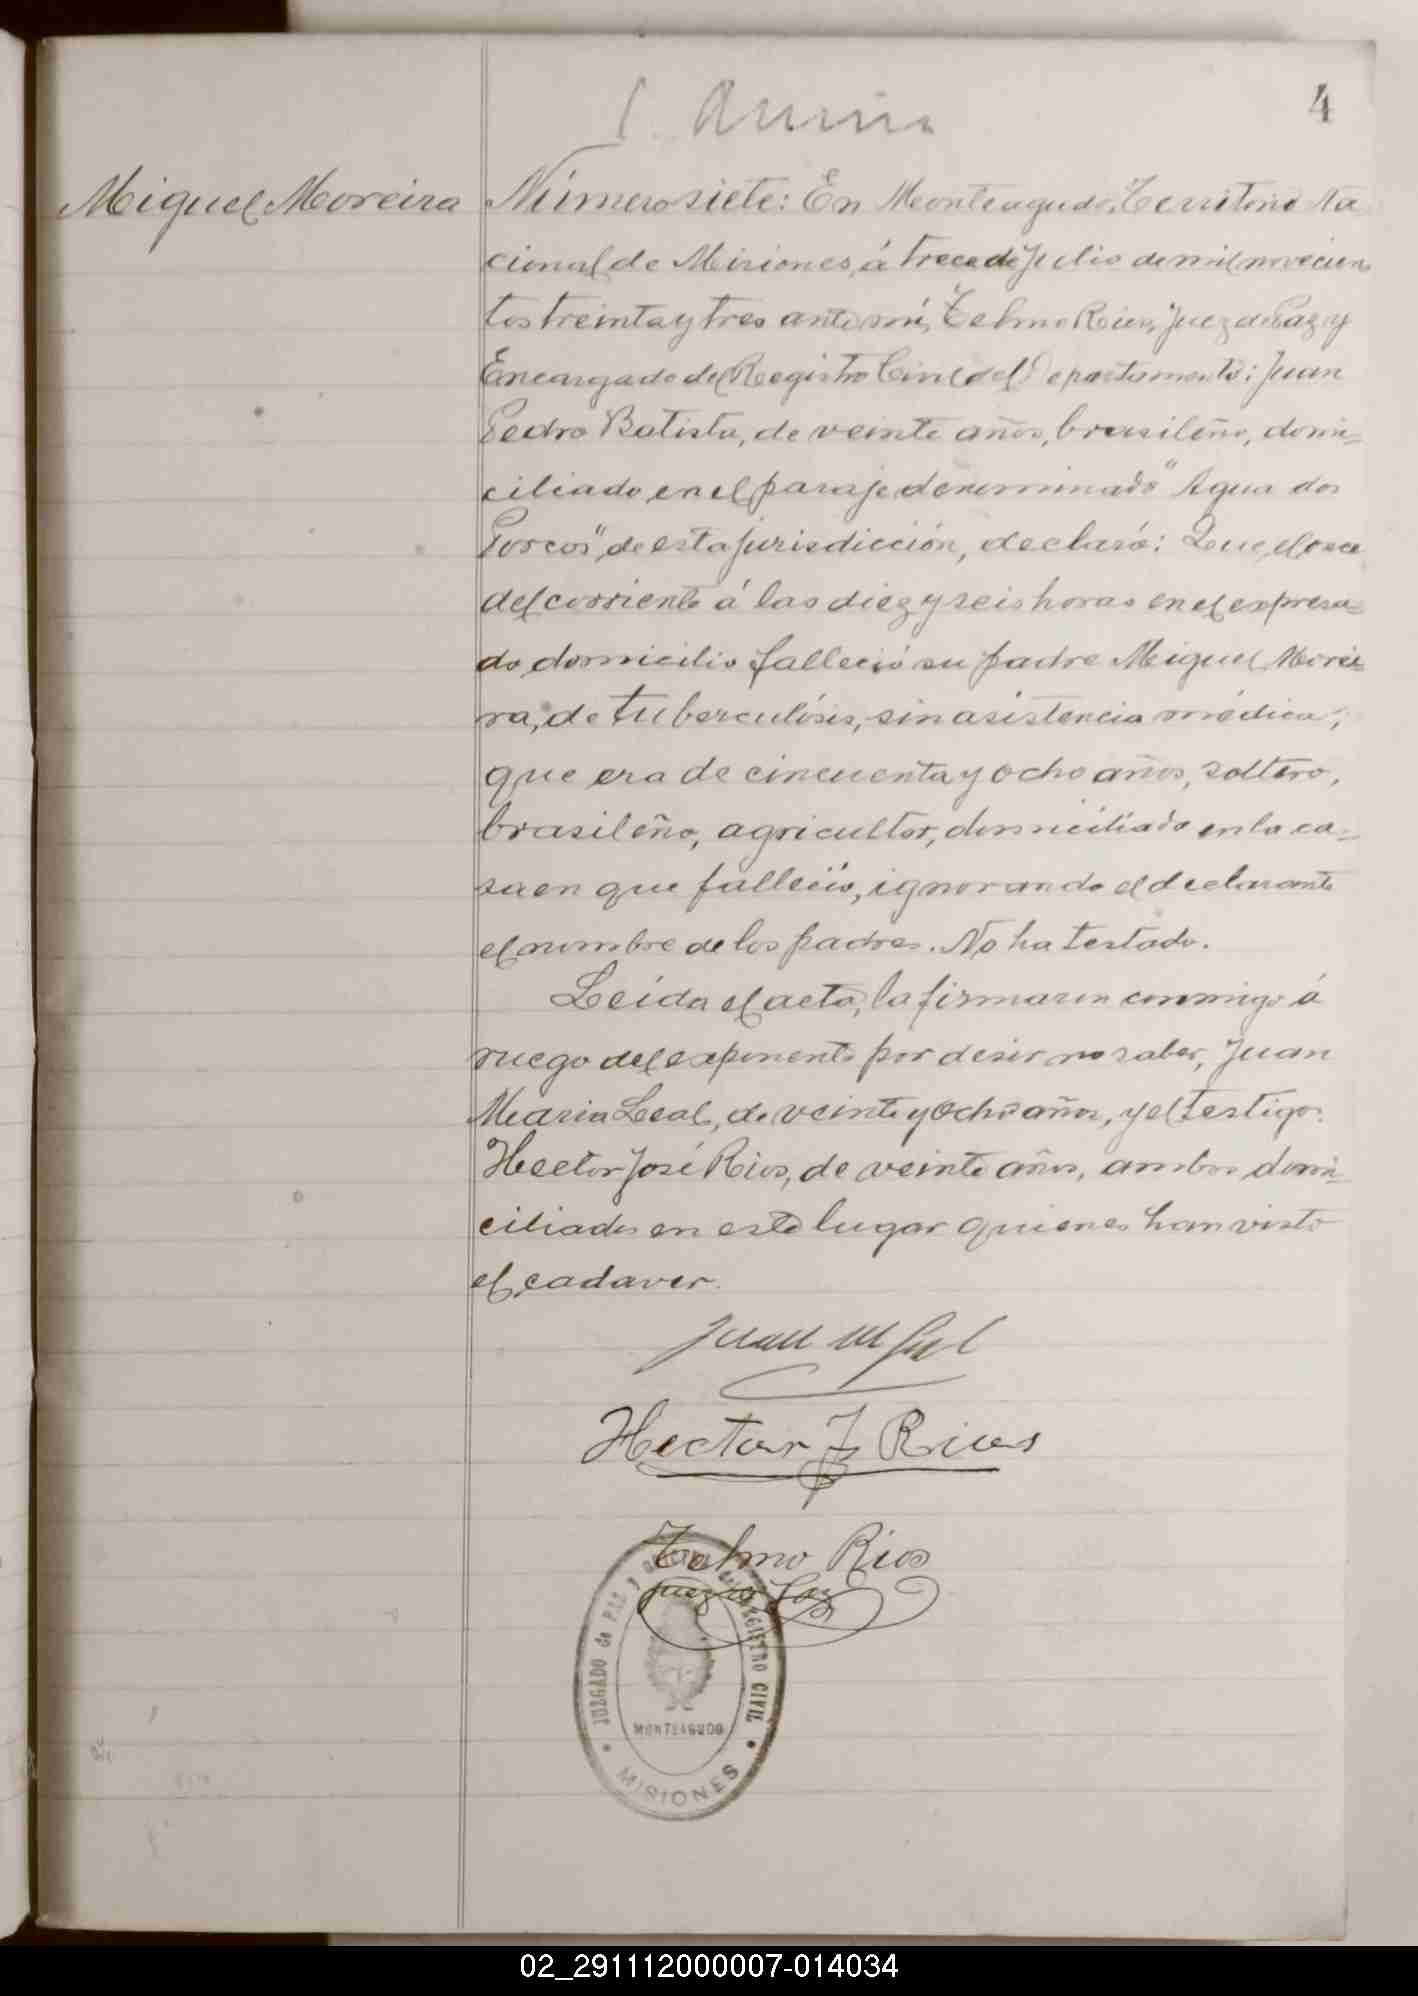 4
Miguel Moreira
Número siete: En Monteagudo, Territorio Na
cional de Misiones, á trece de Julio de mil novecien
tos treinta y tres ante mí, Telmo Rios, Juez de Paz y
Encargado del Registro Civil del Departamento: Juan
Pedro Batista, de veinte años, brasileño, domi=
ciliado en el paraje denominado "Agua dos
Porcos", de esta jurisdicción, declaró: Que, el once
del corriente á las diez y seis horas en el expresa=
do domicilio falleció su padre Miguel Morei=
ra, de tuberculósis, sin asistencia médica;
que era de cincuenta y ocho años, soltero,
brasileño, agricultor, domiciliado en la ca=
sa en que falleció, ignorando el declarante
el nombre de los padres. No ha testado.
Leída el acta, la firmaron conmigo á
ruego del exponente por desir no saber, Juan
Maria Leal, de veinte y ocho años, y el testigo:
Hector José Rios, de veinte años, ambos domi=
ciliados en este lugar quienes han visto
el cadaver.
Juan M Leal
Hector J Rios
Telmo Rios
Juez de Paz
JUZGADO de PAZ y REGISTRO CIVIL
MONTEAGUDO
MISIONES
02_291112000007-014034